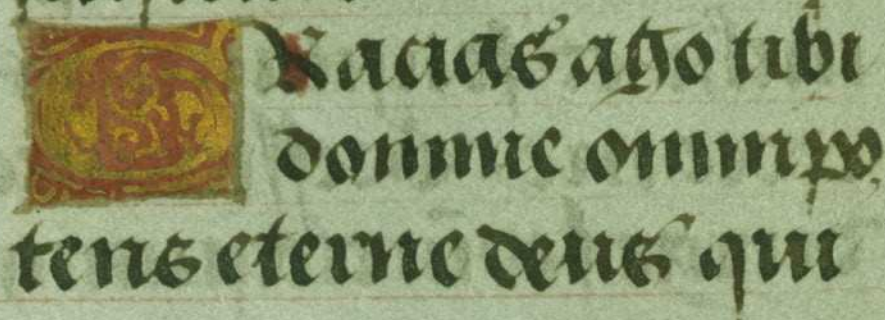 GRacias ago tibi
domine omnipo
tens eterne deus qui